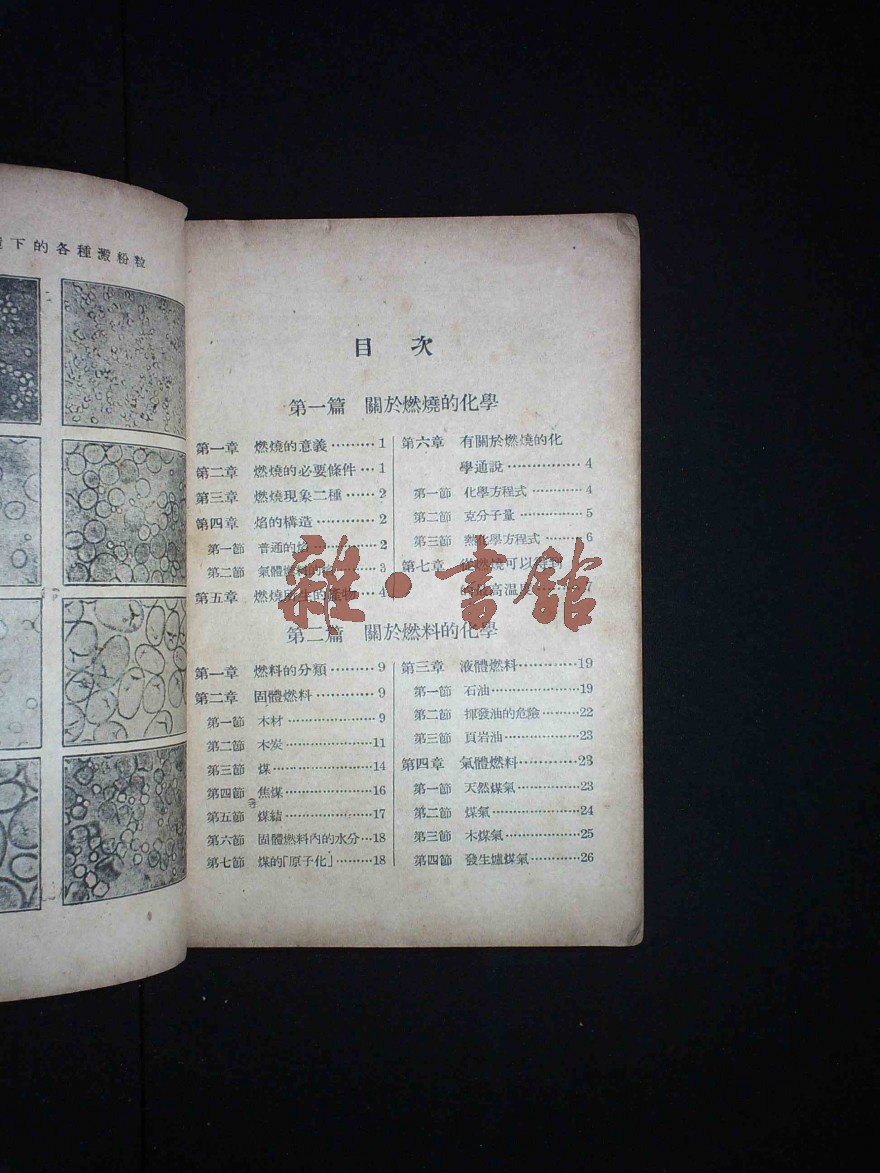 下的各種澱粉粒
目 次
第一篇 關於燃燒的化學
第一章 燃燒的意義………1
第二章 燃燒的必要條件…1
第三章 燃燒現象二種……2
第四章 焰的構造…………2
第一節 普通的焰…………2
第二節 氣體燃料的焰……3
第五章 燃燒所生的產物…4
第六章 有關於燃燒的化
學通說……………4
第一節 化學方程式…………4
第二節 克分子量……………5
第三節 熱化學方程式………6
第七章 從燃燒可以得到
的最高溫度………7
第二篇 關於燃料的化學
第一章 燃料的分類………9
第二章 固體燃料…………9
第一節 木材………………9
第二節 木炭………………11
第三節 煤…………………14
第四節 焦煤………………16
第五節 煤結………………17
第六節 固體燃料內的水分…18
第七節 煤的「原子化」………18
第三章 液體燃料…………19
第一節 石油………………19
第二節 揮發油的危險………22
第三節 頁岩油………………23
第四章 氣體燃料…………23
第一節 天然煤氣……………23
第二節 煤氣…………………24
第三節 木煤氣………………25
第四節 發生爐煤氣…………26
雜·書館